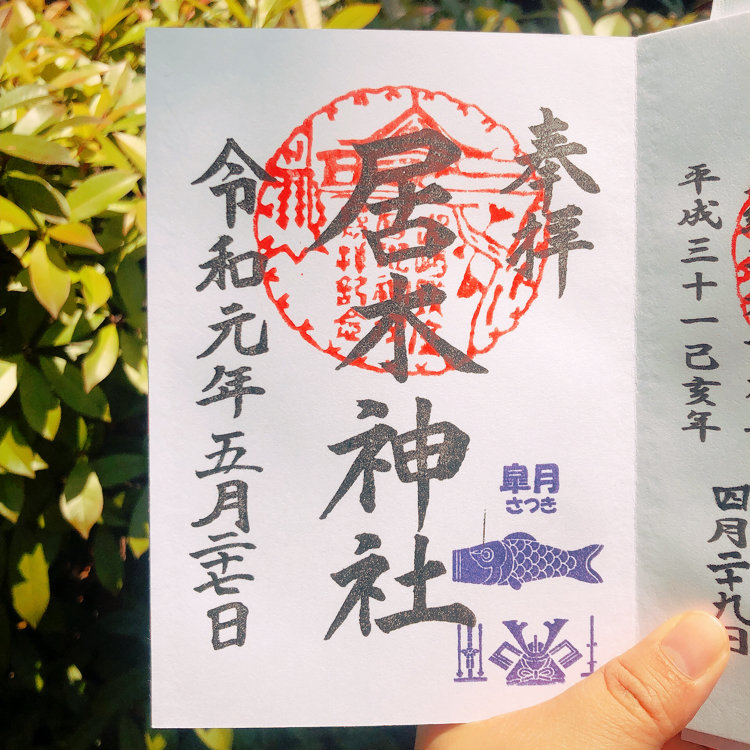 平成三十一己亥年
四月二十九日
奉拝
居木神社
皐月
さつき
令和元年五月二十七日